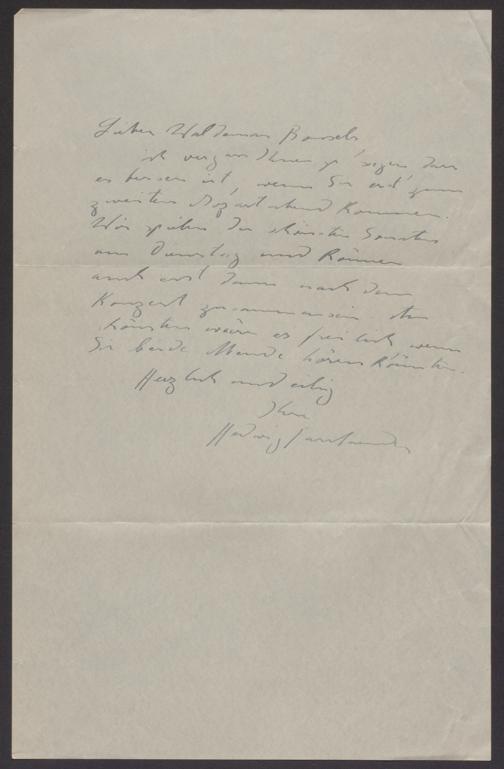 Lieber Waldemar Bonsels
ich vergass Ihnen zu sagen dass
es besser ist, wenn Sie erst zum
zweiten Mozartabend kommen.
Wir spielen die schönsten Sonaten
am Dienstag und können
auch erst dann nach dem
Konzert zusammensein. Am
schönsten wäre es freilich wenn
Sie beide Abende hören könnten.
Herzlich und eilig
Ihre
Hedwig Fassbaender